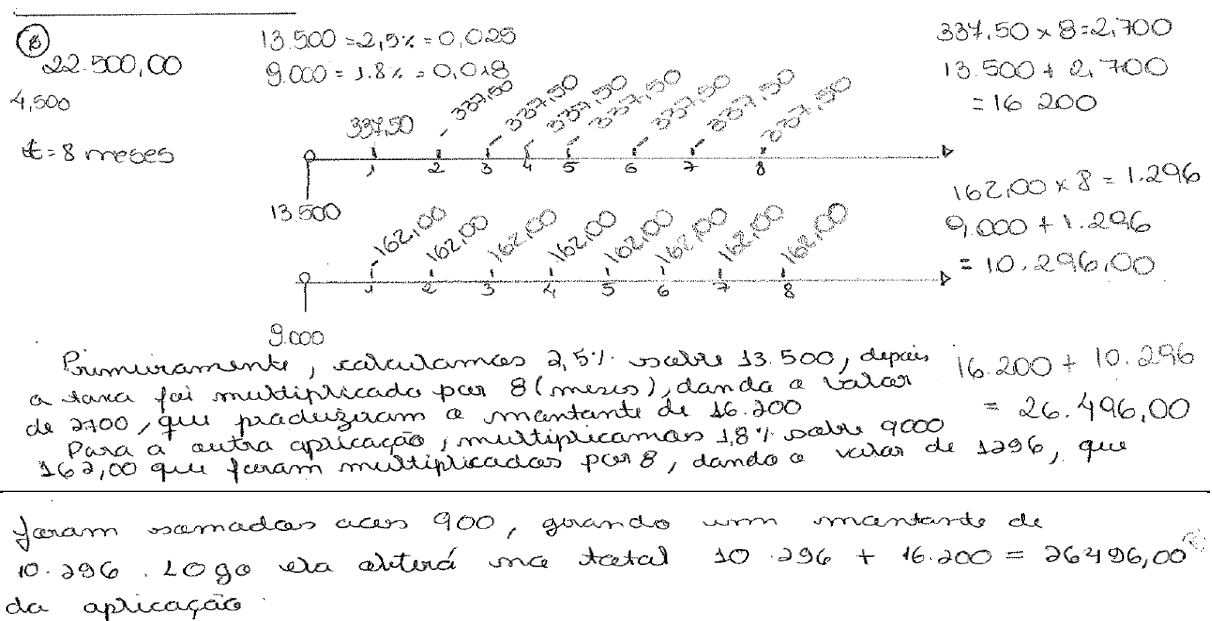 B
22.500,00
4,500
t = 8 meses
13.500 = 2,5% = 0,025
9.000 = 1.8% = 0,018
337,50 × 8 = 2,700
13.500 + 2,700
= 16 200
337,50 337,50 337,50 337,50 337,50 337,50 337,50 337,50
1 2 3 4 5 6 7 8
13.500
162,00 × 8 = 1.296
9,000 + 1.296
= 10.296,00
162,00 162,00 162,00 162,00 162,00 162,00 162,00 162,00
1 2 3 4 5 6 7 8
9.000
Primeiramente, calculamos 2,5% sobre 13.500, depois
a taxa foi multiplicado por 8 (meses), dando o valor
de 2700, que produziram o montante de 16.200
Para a outra aplicação, multiplicamos 1,8% sobre 9000
162,00 que foram multiplicados por 8, dando o valor de 1296, que
16.200 + 10.296
= 26.496,00
foram somados aos 900, gerando um montante de
10.296. Logo ela obterá no total 10.296 + 16.200 = 26496,00
da aplicação.